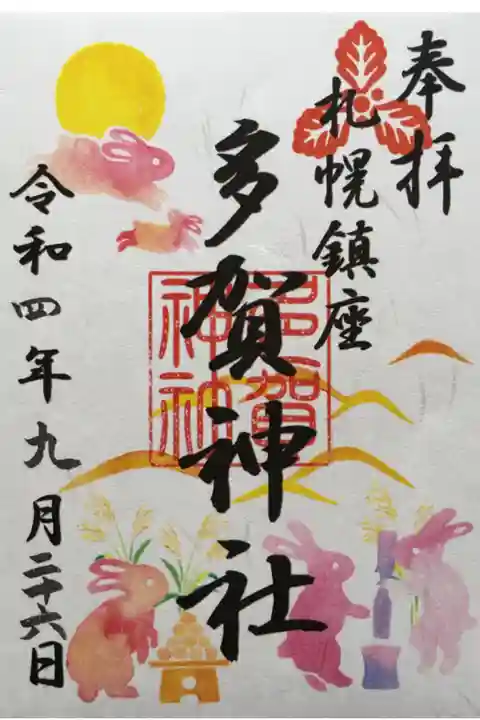 奉拝
札幌鎮座
多賀神社
多賀
神社
令和四年九月二十六日